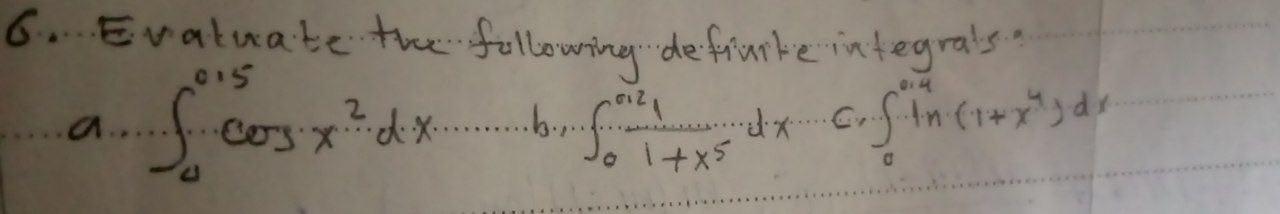 6. Evaluate the following definite integrals:
a. ∫₀^0.5 cos x² dx b. ∫₀^0.2 1/(1+x⁵) dx c. ∫₀^0.4 ln(1+x⁴) dx